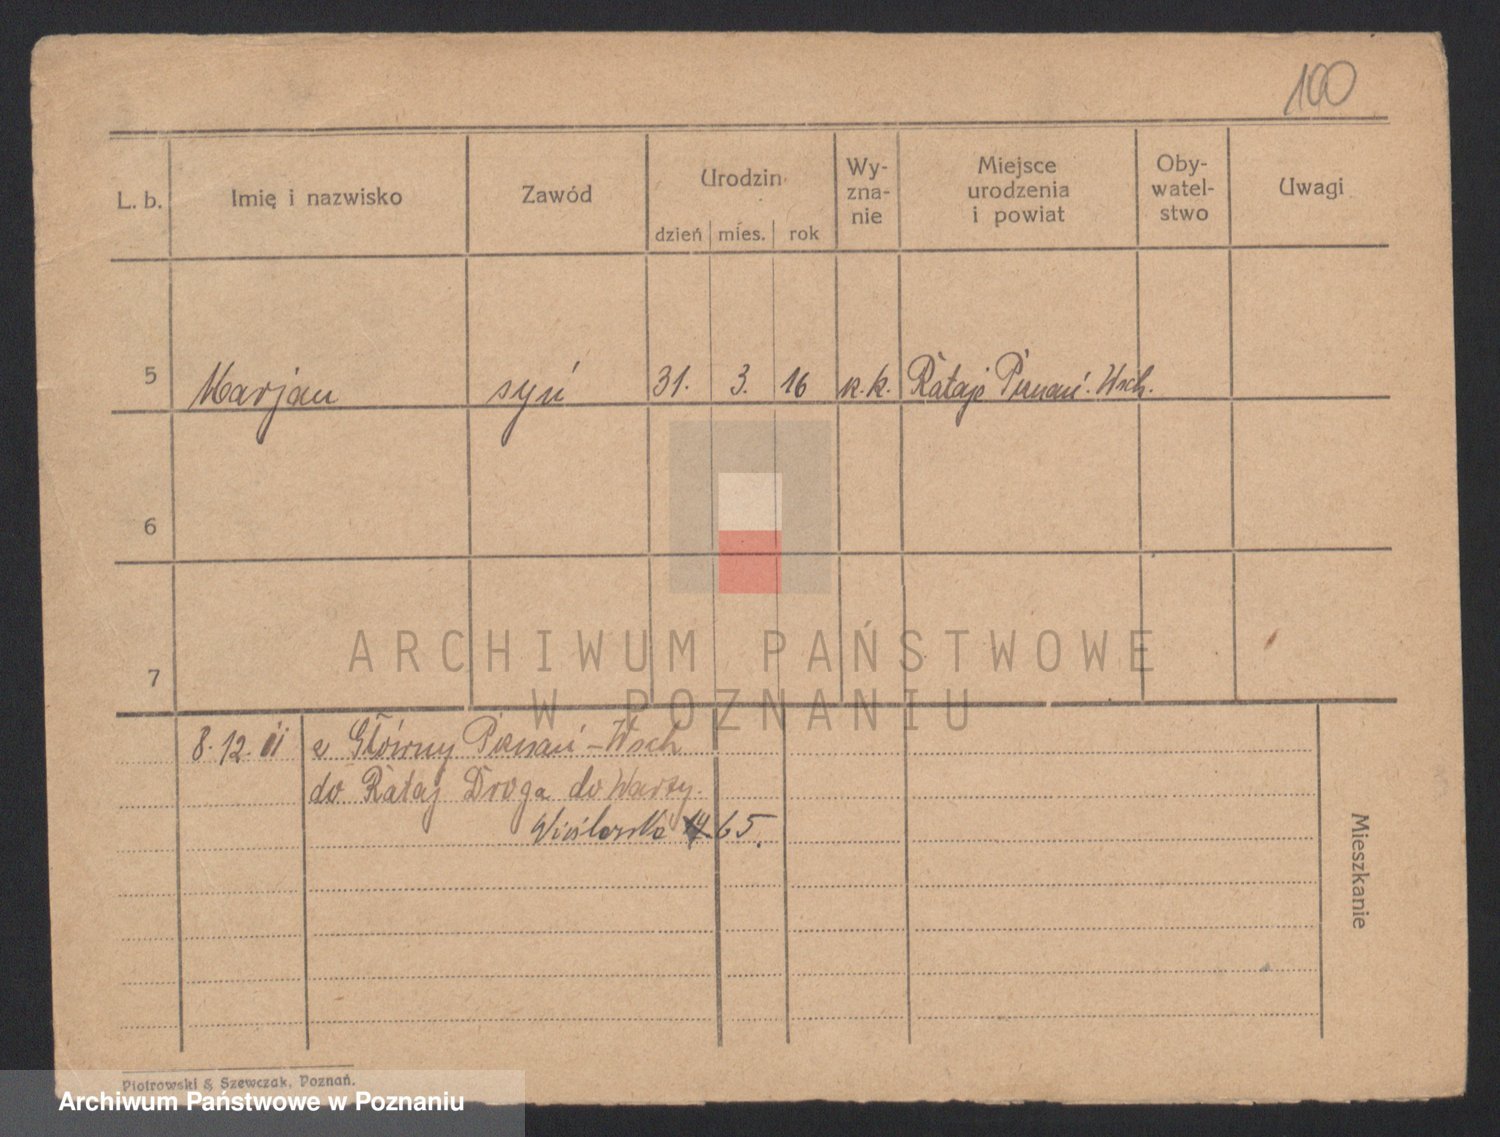 100
L. b. Imię i nazwisko Zawód Urodzin Wy-zna-nie Miejsce urodzenia i powiat Oby-watel-stwo Uwagi
dzień mies. rok
5 Marjan syn 31. 3. 16 k.k. Rataje Poznań. Wsch.
6
7
ARCHIWUM PAŃSTWOWE
W POZNANIU
8.12. z Główny Poznań-Wsch
do Rataj Droga do Warty.
Wioślarska 65.
Mieszkanie
Piotrowski & Szewczak, Poznań.
Archiwum Państwowe w Poznaniu